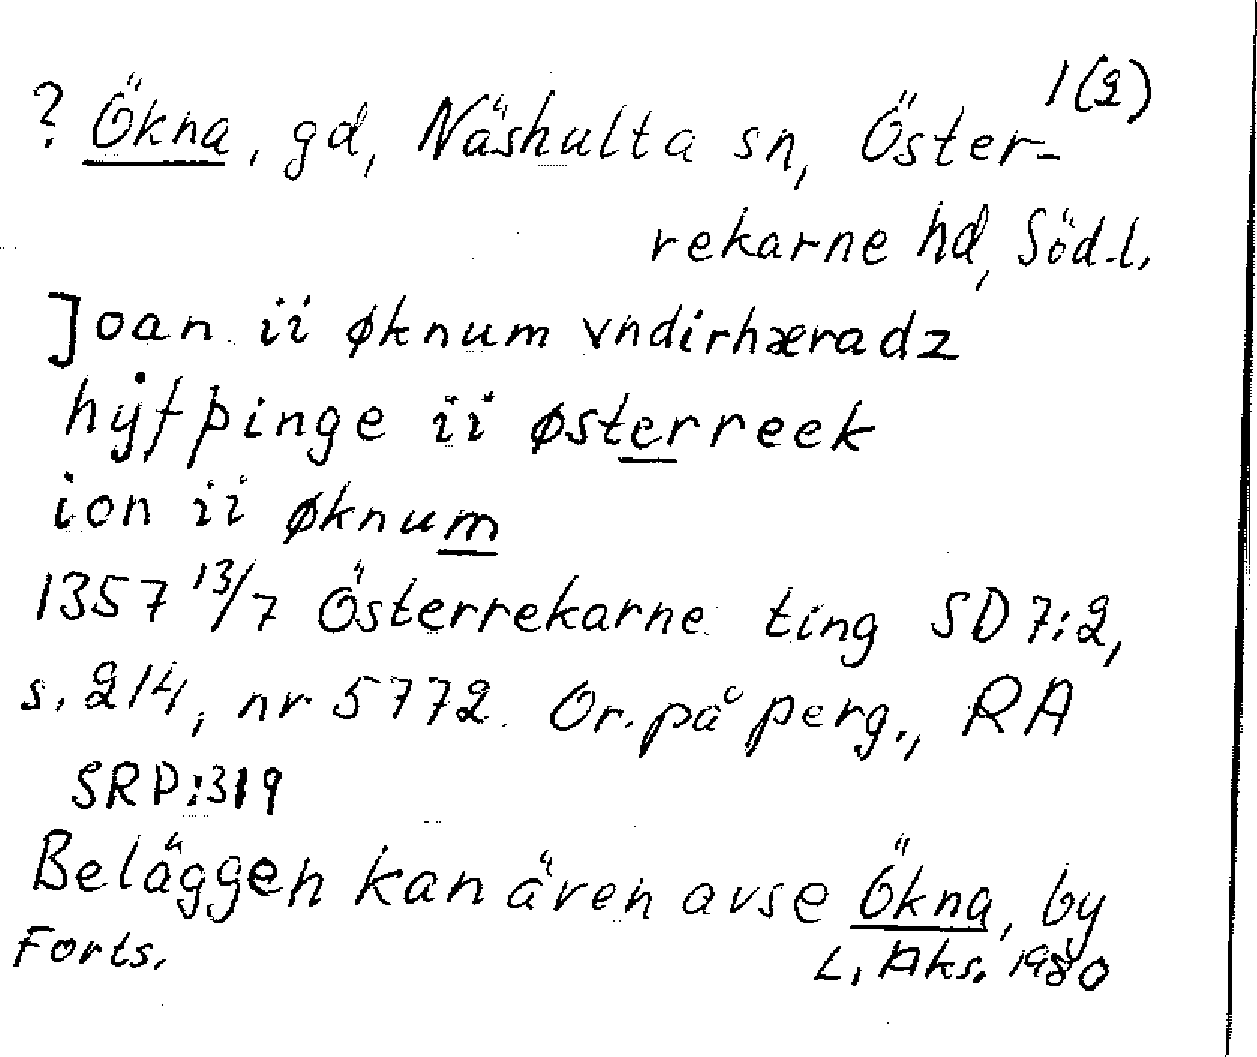 1(2)
? Ökna, gd, Näshulta sn, Öster-
rekarne hd, Söd.l.
Joan ii øknum vndirhæradz
hyfþinge ii østerreek
ion ii øknum
1357 13/7 Österrekarne ting SD 7:2,
s. 214, nr 5772. Or. på perg., RA
SRP:319
Beläggen kan även avse Ökna, by
Forts.
L. Aks. 1980